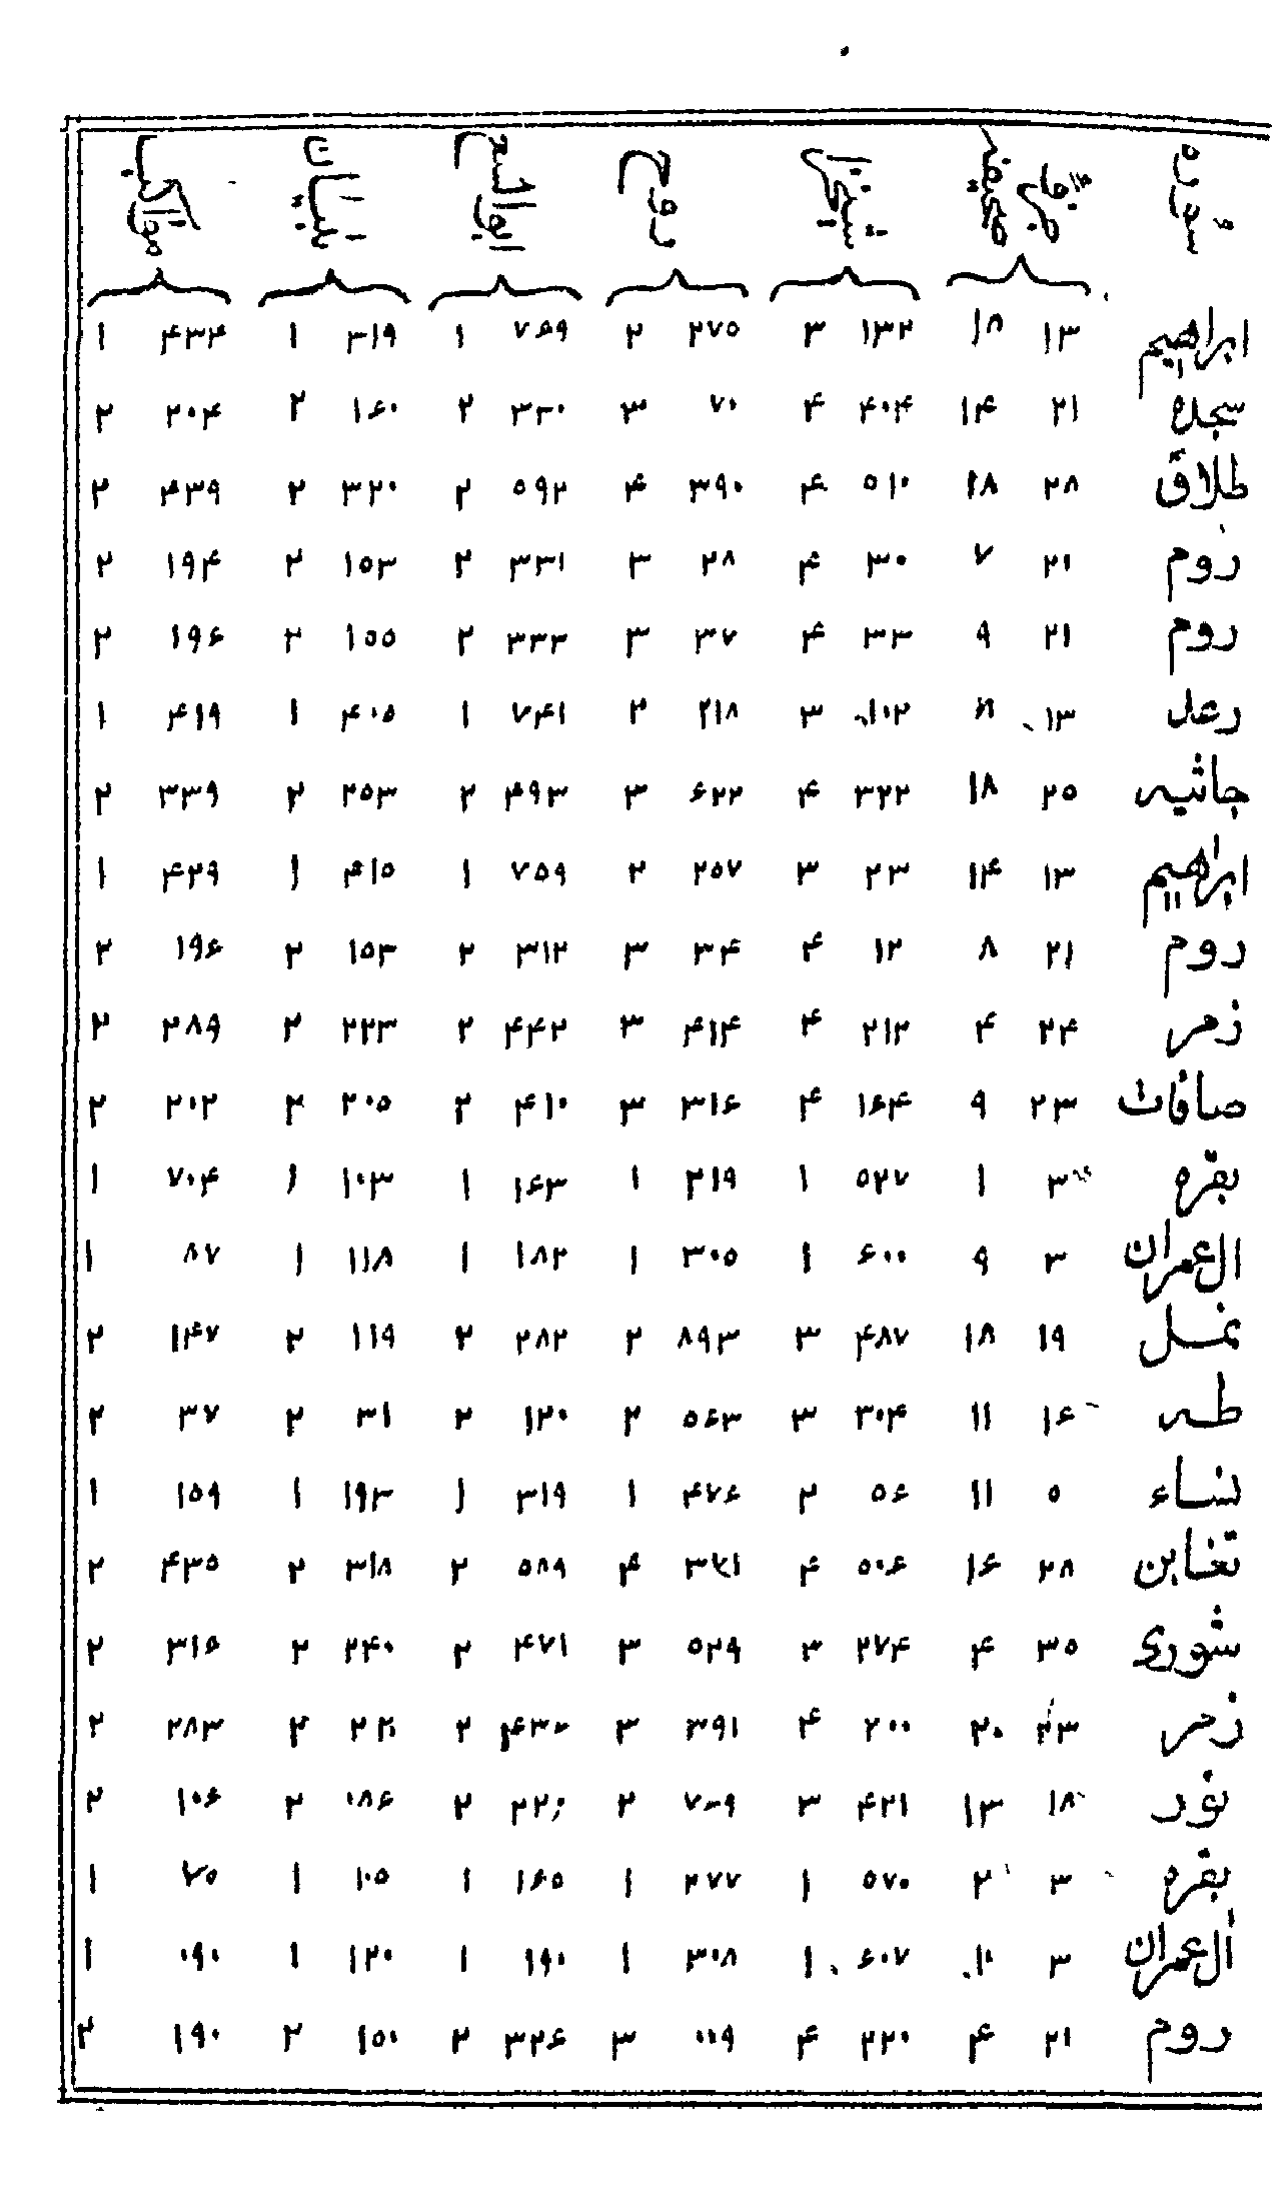 سوره صفحه قرآن شیخ روح ابوالسعود نیشابوری
ابراهیم ۱۳ ۱۸ ۱۳۲ ۳ ۲۷۵ ۲ ۷۶۹ ۱ ۳۱۹ ۱ ۴۳۴ ۱
سجده ۲۱ ۱۴ ۴۰۴ ۴ ۷۰ ۳ ۳۳۰ ۲ ۱۶۰ ۲ ۲۰۴ ۲
طلاق ۲۸ ۱۸ ۵۱۰ ۴ ۳۹۰ ۴ ۵۹۲ ۲ ۳۲۰ ۲ ۴۳۹ ۲
روم ۲۱ ۷ ۳۰ ۴ ۲۸ ۳ ۳۳۱ ۲ ۱۵۳ ۲ ۱۹۴ ۲
روم ۲۱ ۹ ۳۳ ۴ ۳۷ ۳ ۳۳۳ ۲ ۱۵۵ ۲ ۱۹۶ ۲
رعد ۱۳ ۸ ۱۰۲ ۳ ۲۱۸ ۲ ۷۴۱ ۱ ۴۰۵ ۱ ۴۱۹ ۱
جاثیه ۲۵ ۱۸ ۳۲۲ ۴ ۶۲۲ ۳ ۴۹۳ ۲ ۲۵۳ ۲ ۳۳۹ ۲
ابراهیم ۱۳ ۱۴ ۲۳ ۳ ۲۵۷ ۲ ۷۵۹ ۱ ۴۱۵ ۱ ۴۲۹ ۱
روم ۲۱ ۸ ۱۲ ۴ ۳۴ ۳ ۳۱۲ ۲ ۱۵۳ ۲ ۱۹۶ ۲
زمر ۲۴ ۴ ۲۱۲ ۴ ۴۱۴ ۳ ۴۴۲ ۲ ۲۲۳ ۲ ۲۸۹ ۲
صافات ۲۳ ۹ ۱۶۴ ۴ ۳۱۶ ۳ ۴۱۰ ۲ ۲۰۵ ۲ ۲۰۲ ۲
بقره ۳ ۱ ۵۲۷ ۱ ۲۱۹ ۱ ۱۶۳ ۱ ۱۰۳ ۱ ۷۰۴ ۱
ال عمران ۳ ۹ ۶۰۰ ۱ ۳۰۵ ۱ ۱۸۲ ۱ ۱۱۸ ۱ ۸۷ ۱
نمل ۱۹ ۱۸ ۴۸۷ ۳ ۸۹۳ ۲ ۲۸۲ ۲ ۱۱۹ ۲ ۱۴۷ ۲
طه ۱۶ ۱۱ ۳۰۴ ۳ ۵۶۳ ۲ ۱۲۰ ۲ ۳۱ ۲ ۳۷ ۲
نساء ۵ ۱۱ ۵۶ ۲ ۴۷۶ ۱ ۳۱۹ ۱ ۱۹۳ ۱ ۱۵۹ ۱
تغابن ۲۸ ۱۶ ۵۰۶ ۴ ۴ ۵۸۹ ۲ ۳۱۸ ۲ ۴۳۵ ۲
شوری ۳۵ ۴ ۲۷۴ ۳ ۵۲۹ ۳ ۴۷۱ ۲ ۲۴۰ ۲ ۳۱۶ ۲
زمر ۲۳ ۲۰ ۲۰۰ ۴ ۳۹۱ ۳ ۲ ۲ ۲۸۳ ۲
نور ۱۸ ۱۳ ۴۲۱ ۳ ۲ ۲ ۰۸۶ ۲ ۱۰۶ ۲
بقره ۳ ۲ ۵۷۰ ۱ ۲۷۷ ۱ ۱۶۵ ۱ ۱۰۵ ۱ ۷۵ ۱
ال عمران ۳ ۱۰ ۶۰۷ ۱ ۳۰۸ ۱ ۱۹۰ ۱ ۱۲۰ ۱ ۰۹۰ ۱
روم ۲۱ ۴ ۲۲۰ ۴ ۰۰۹ ۳ ۳۲۶ ۲ ۱۵۰ ۲ ۱۹۰ ۲